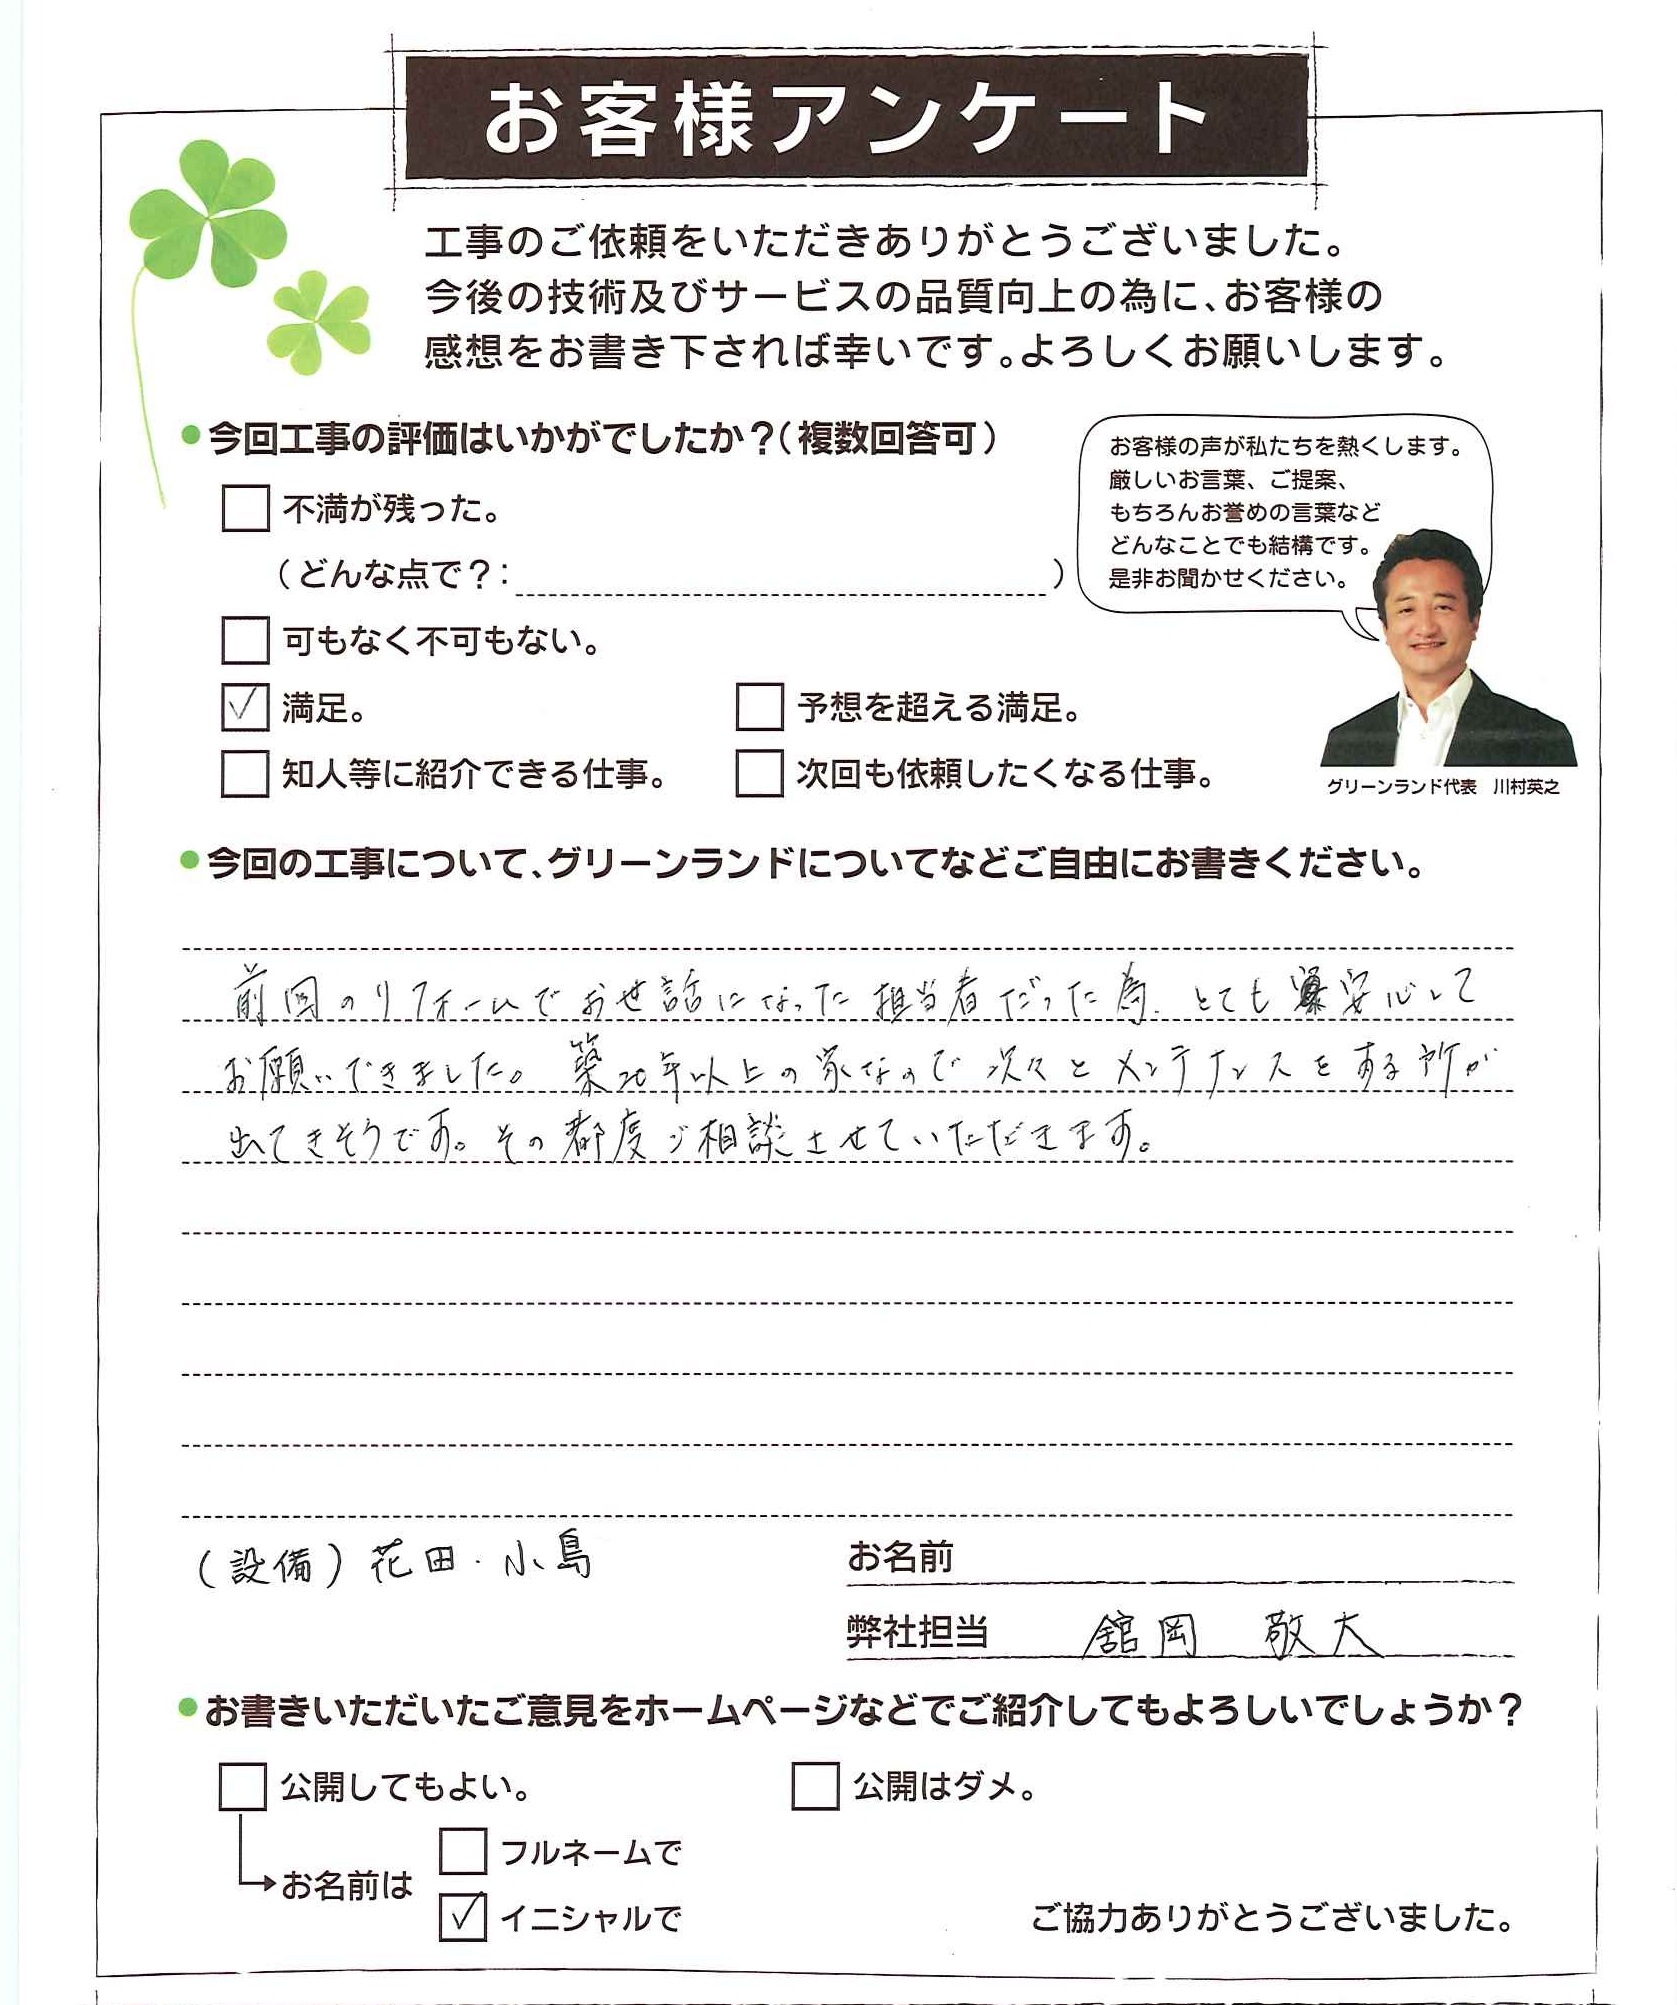 お客様アンケート
工事のご依頼をいただきありがとうございました。
今後の技術及びサービスの品質向上の為に、お客様の
感想をお書き下されば幸いです。よろしくお願いします。
●今回工事の評価はいかがでしたか?(複数回答可)
お客様の声が私たちを熱くします。
厳しいお言葉、ご提案、
もちろんお誉めの言葉など
どんなことでも結構です。
是非お聞かせください。
グリーンランド代表 川村英之
□ 不満が残った。
(どんな点で?: )
□ 可もなく不可もない。
☑ 満足。 □ 予想を超える満足。
□ 知人等に紹介できる仕事。 □ 次回も依頼したくなる仕事。
●今回の工事について、グリーンランドについてなどご自由にお書きください。
前回のリフォームでお世話になった担当者だった為、とても安心して
お願いできました。築20年以上の家なので次々とメンテナンスをする所が
出てきそうです。その都度ご相談させていただきます。
(設備)花田・小島
お名前
弊社担当 舘岡 敬大
●お書きいただいたご意見をホームページなどでご紹介してもよろしいでしょうか?
□ 公開してもよい。 □ 公開はダメ。
→お名前は □ フルネームで
☑ イニシャルで
ご協力ありがとうございました。